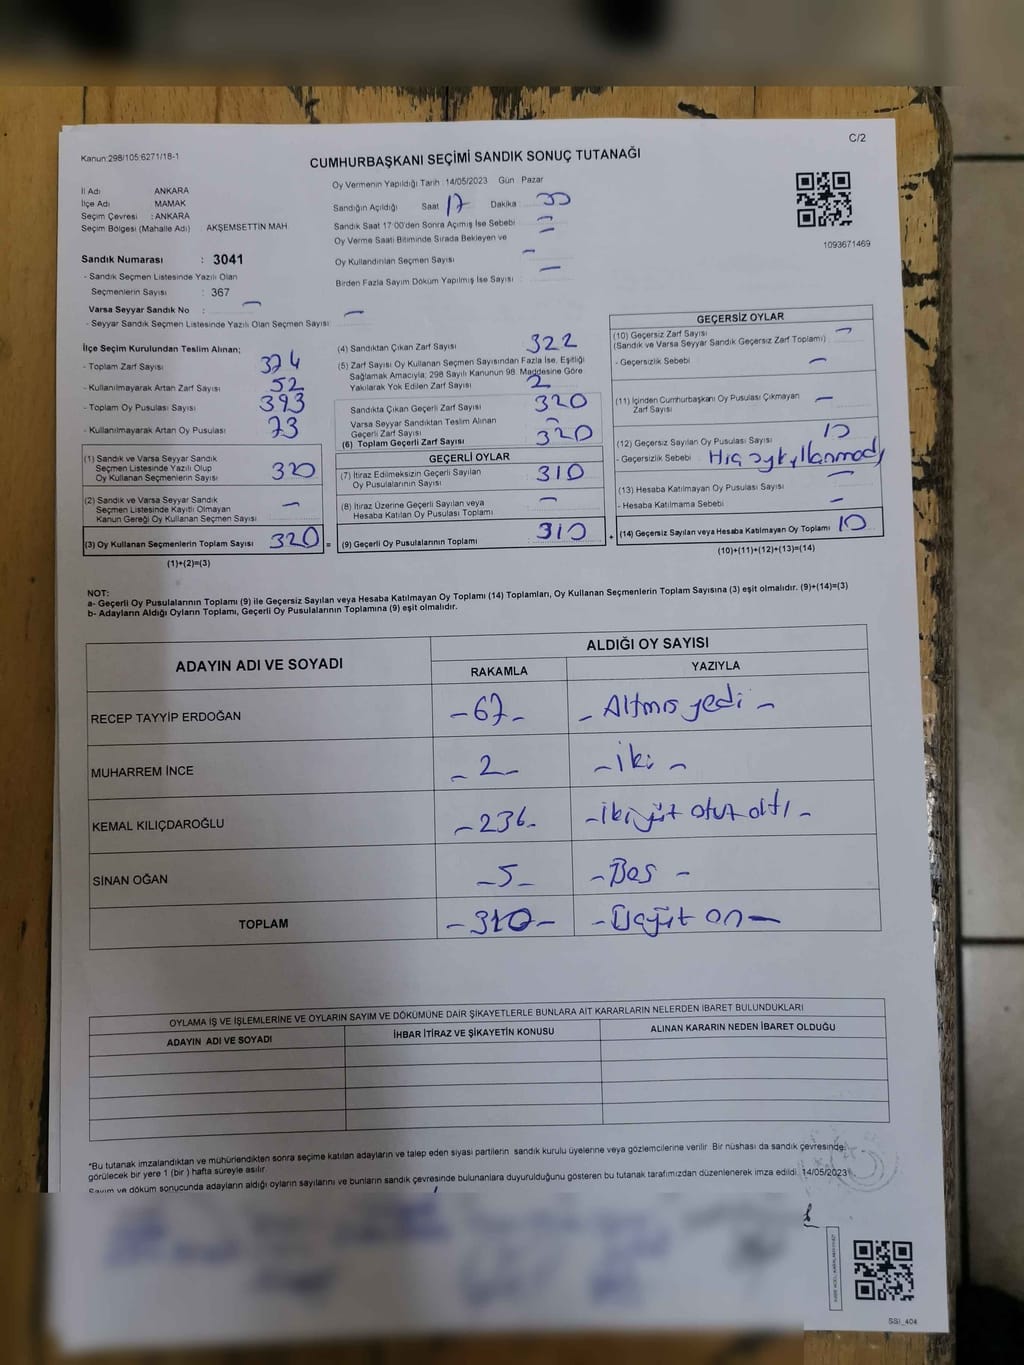 C/2
Kanun:298/105:6271/18-1
CUMHURBAŞKANI SEÇİMİ SANDIK SONUÇ TUTANAĞI
İl Adı ANKARA
İlçe Adı MAMAK
Seçim Çevresi : ANKARA
Seçim Bölgesi (Mahalle Adı) : AKŞEMSETTİN MAH
Oy Vermenin Yapıldığı Tarih : 14/05/2023 Gün Pazar
Sandığın Açıldığı Saat 17 Dakika
Sandık Saat 17:00'den Sonra Açmış İse Sebebi
Oy Verme Saati Bitiminde Sırada Bekleyen ve
Oy Kullandırılan Seçmen Sayısı
Birden Fazla Sayım Döküm Yapılmış İse Sayısı :
1093671469
Sandık Numarası : 3041
- Sandık Seçmen Listesinde Yazılı Olan
Seçmenlerin Sayısı : 367
Varsa Seyyar Sandık No : —
- Seyyar Sandık Seçmen Listesinde Yazılı Olan Seçmen Sayısı : —
İlçe Seçim Kurulundan Teslim Alınan;
- Toplam Zarf Sayısı 374
- Kullanılmayarak Artan Zarf Sayısı 52
- Toplam Oy Pusulası Sayısı 393
- Kullanılmayarak Artan Oy Pusulası 73
(1) Sandık ve Varsa Seyyar Sandık
Seçmen Listesinde Yazılı Olup
Oy Kullanan Seçmenlerin Sayısı 320
(2) Sandık ve Varsa Seyyar Sandık
Seçmen Listesinde Kayıtlı Olmayan
Kanun Gereği Oy Kullanan Seçmen Sayısı —
(3) Oy Kullanan Seçmenlerin Toplam Sayısı 320 =
(1)+(2)=(3)
(4) Sandıktan Çıkan Zarf Sayısı 322
(5) Zarf Sayısı Oy Kullanan Seçmen Sayısından Fazla İse, Eşitliği
Sağlamak Amacıyla; 298 Sayılı Kanunun 98. Maddesine Göre
Yakılarak Yok Edilen Zarf Sayısı 2
Sandıkta Çıkan Geçerli Zarf Sayısı 320
Varsa Seyyar Sandıktan Teslim Alınan
Geçerli Zarf Sayısı —
(6) Toplam Geçerli Zarf Sayısı 320
GEÇERLİ OYLAR
(7) İtiraz Edilmeksizin Geçerli Sayılan
Oy Pusulasının Sayısı 310
(8) İtiraz Üzerine Geçerli Sayılan veya
Hesaba Katılan Oy Pusulası Toplamı —
(9) Geçerli Oy Pusulalarının Toplamı 310 +
GEÇERSİZ OYLAR
(10) Geçersiz Zarf Sayısı —
(Sandık ve Varsa Seyyar Sandık Geçersiz Zarf Toplamı)
- Geçersizlik Sebebi —
(11) İçinden Cumhurbaşkanı Oy Pusulası Çıkmayan
Zarf Sayısı —
(12) Geçersiz Sayılan Oy Pusulası Sayısı 10
- Geçersizlik Sebebi
(13) Hesaba Katılmayan Oy Pusulası Sayısı —
- Hesaba Katılmama Sebebi —
(14) Geçersiz Sayılan veya Hesaba Katılmayan Oy Toplamı 10
(10)+(11)+(12)+(13)=(14)
NOT:
a- Geçerli Oy Pusulalarının Toplamı (9) ile Geçersiz Sayılan veya Hesaba Katılmayan Oy Toplamı (14) Toplamları, Oy Kullanan Seçmenlerin Toplam Sayısına (3) eşit olmalıdır. (9)+(14)=(3)
b- Adayların Aldığı Oyların Toplamı, Geçerli Oy Pusulalarının Toplamına (9) eşit olmalıdır.
ADAYIN ADI VE SOYADI
ALDIĞI OY SAYISI
RAKAMLA YAZIYLA
RECEP TAYYİP ERDOĞAN -67- - Altmış yedi -
MUHARREM İNCE -2- - iki -
KEMAL KILIÇDAROĞLU -236- - ikiyüz otuz altı -
SİNAN OĞAN -5- - Beş -
TOPLAM -310- - Üçyüz on -
OYLAMA İŞ VE İŞLEMLERİNE VE OYLARIN SAYIM VE DÖKÜMÜNE DAİR ŞİKAYETLERLE BUNLARA AİT KARARLARIN NELERDEN İBARET BULUNDUKLARI
ADAYIN ADI VE SOYADI İHBAR İTİRAZ VE ŞİKAYETİN KONUSU ALINAN KARARIN NEDEN İBARET OLDUĞU
*Bu tutanak imzalandıktan ve mühürlendikten sonra seçime katılan adayların ve talep eden siyasi partilerin sandık kurulu üyelerine veya gözlemcilerine verilir. Bir nüshası da sandık çevresinde
görülecek bir yere 1 (bir) hafta süreyle asılır
Sayım ve döküm sonucunda adayların aldığı oyların sayılarını ve bunların sandık çevresinde bulunanlara duyurulduğunu gösteren bu tutanak tarafımızdan düzenlenerek imza edildi. 14/05/2023